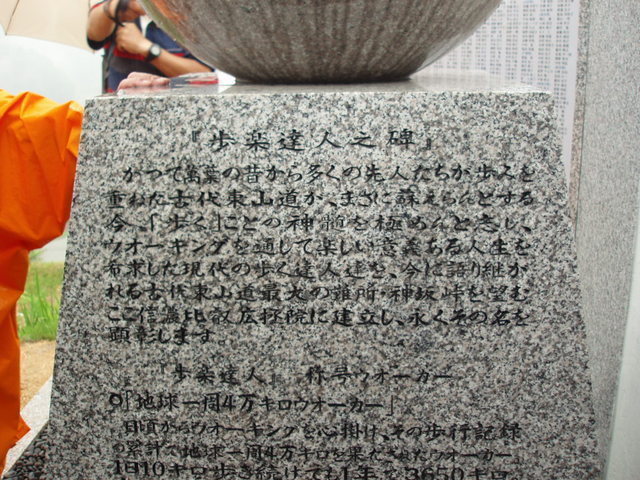 『歩楽達人之碑』
かつて萬葉の昔から多くの先人たちが歩みを
重ねた古代東山道が、まさに蘇えらんとする
今、「歩く」ことの神髄を極めんと志し、
ウオーキングを通して楽しい意義ある人生を
希求した現代の歩く達人達を、今に語り継か
れる古代東山道最大の難所・神坂峠を望む
ここ信濃比叡広拯院に建立し、永くその名を
顕彰します。
「歩楽達人」 称号ウオーカー
○「地球一周4万キロウオーカー」
日頃からウオーキングを心掛け、その歩行記録
の累計で地球一周4万キロを果たされたウオーカー。
1日10キロ歩き続けても1年で3650キロ。